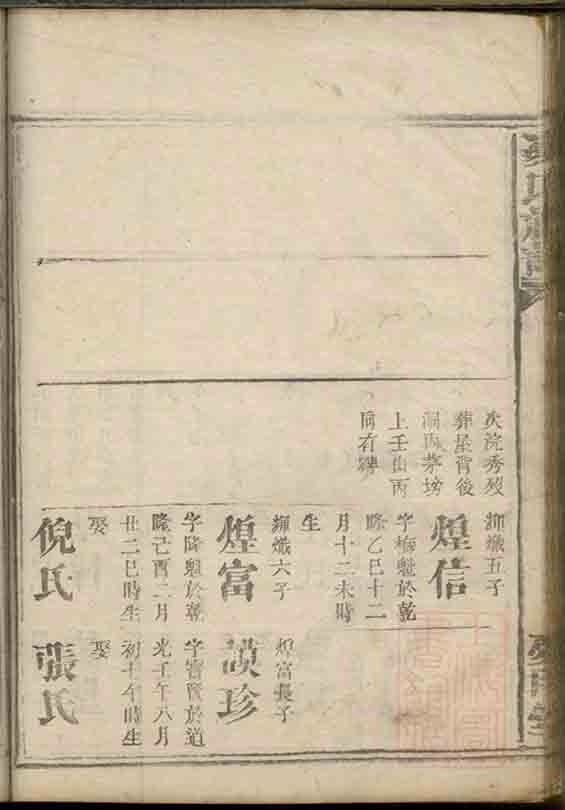 次浣秀歿
葬屋背後
洞內茅塝
上壬山丙
向有碑
煇熾五子
煌信
字梅魁於乾
隆乙巳十二
月十二未時
生
煇熾六子
煌富
字隆魁於乾
隆己酉二月
廿二巳時生
娶
倪氏
煌富長子
謨珍
字寶賢於道
光壬午六月
初十午時生
娶
張氏